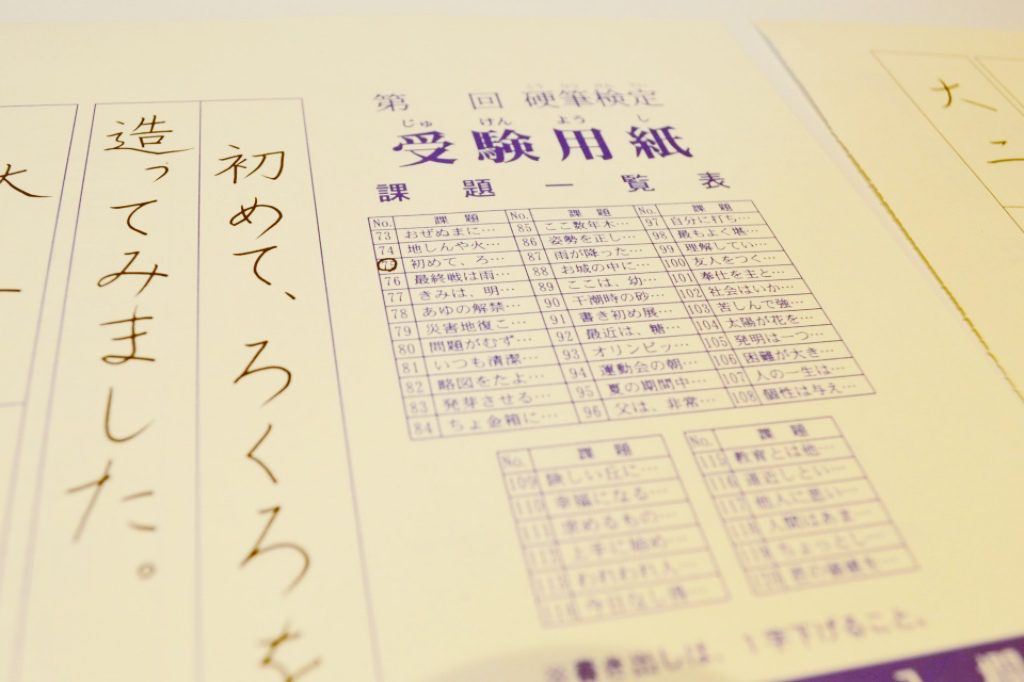 第　回 硬筆検定
じゅ けん よう し
受験用紙
課題一覧表
No. 課題
73 おぜぬまに…
74 地しんや火…
初めて、ろ…
76 最終戦は雨…
77 きみは、明…
78 あゆの解禁…
79 災害地復こ…
80 問題がむず…
81 いつも清潔…
82 略図をたよ…
83 発芽させる…
84 ちょ金箱に…
No. 課題
85 ここ数年木…
86 姿勢を正し…
87 雨が降った…
88 お城の中に…
89 ここは、幼…
90 干潮時の砂…
91 書き初め展…
92 最近は、糖…
93 オリンピッ…
94 運動会の朝…
95 夏の期間中…
96 父は、非常…
No. 課題
97 自分に打ち…
98 最もよく堪…
99 理解してい…
100 友人をつく…
101 奉仕を主と…
102 社会はいか…
103 苦しんで強…
104 太陽が花を…
105 発明は一つ…
106 困難が大き…
107 人の一生は…
108 個性は与え…
No. 課題
109 険しい丘に…
110 幸福になる…
111 求めるもの…
112 上手に始め…
113 われわれ人…
114 今日なし得…
No. 課題
115 教育とは他…
116 道近しとい…
117 他人に悪い…
118 人間はあま…
119 ちょっとし…
120
※書き出しは、1字下げること。
初めて、ろくろを
造ってみました。
大